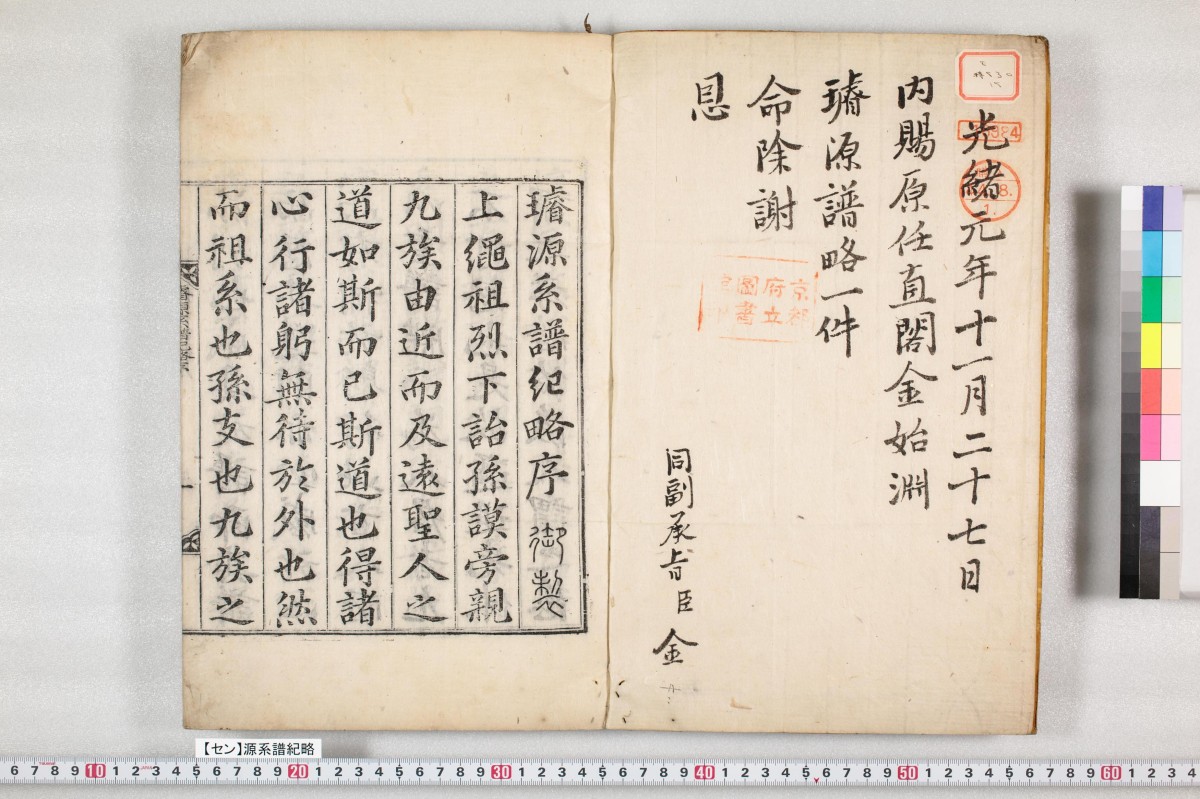 光緒元年十一月二十七日
内賜原任直閣金始淵
璿源譜略一件
命除謝
恩
同副承旨臣金
京都
府立
圖書
璿源系譜紀略序 御製
上繩祖烈下詒孫謨旁親
九族由近而及遠聖人之
道如斯而已斯道也得諸
心行諸躬無待於外也然
而祖系也孫支也九族之
【セン】源系譜紀略
6 7 8 9 10 1 2 3 4 5 6 7 8 9 20 1 2 3 4 5 6 7 8 9 30 1 2 3 4 5 6 7 8 9 40 1 2 3 4 5 6 7 8 9 50 1 2 3 4 5 6 7 8 9 60 1 2 3 4